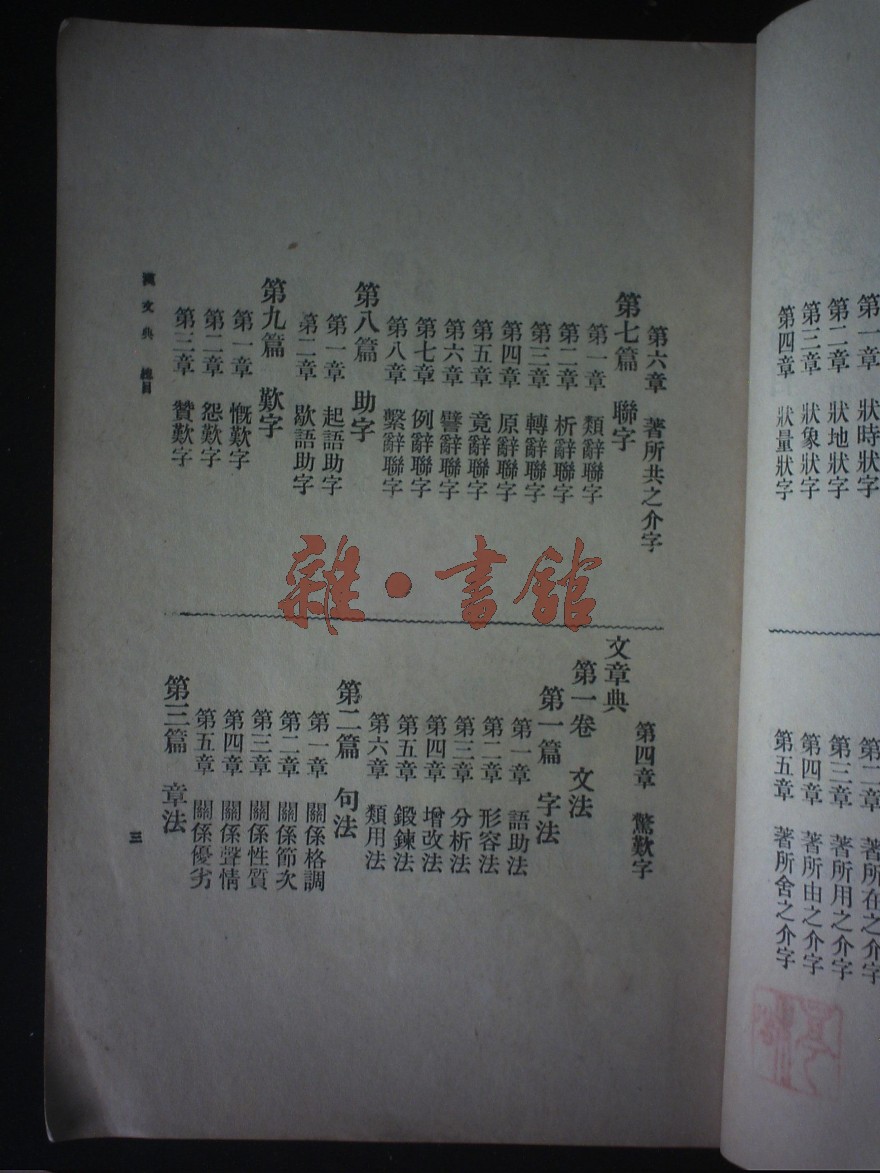 第一章　狀時狀字
第二章　狀地狀字
第三章　狀象狀字
第四章　狀量狀字
第二章　著所在之介字
第三章　著所用之介字
第四章　著所由之介字
第五章　著所舍之介字
第六章　著所共之介字
第七篇　聯字
第一章　類辭聯字
第二章　析辭聯字
第三章　轉辭聯字
第四章　原辭聯字
第五章　竟辭聯字
第六章　譬辭聯字
第七章　例辭聯字
第八章　繫辭聯字
第八篇　助字
第一章　起語助字
第二章　歇語助字
第九篇　歎字
第一章　慨歎字
第二章　怨歎字
第三章　贊歎字
漢文典　總目
第四章　驚歎字
文章典
第一卷　文法
第一篇　字法
第一章　語助法
第二章　形容法
第三章　分析法
第四章　增改法
第五章　鍛鍊法
第六章　類用法
第二篇　句法
第一章　關係格調
第二章　關係節次
第三章　關係性質
第四章　關係聲情
第五章　關係優劣
第三篇　章法
三
雜·書館